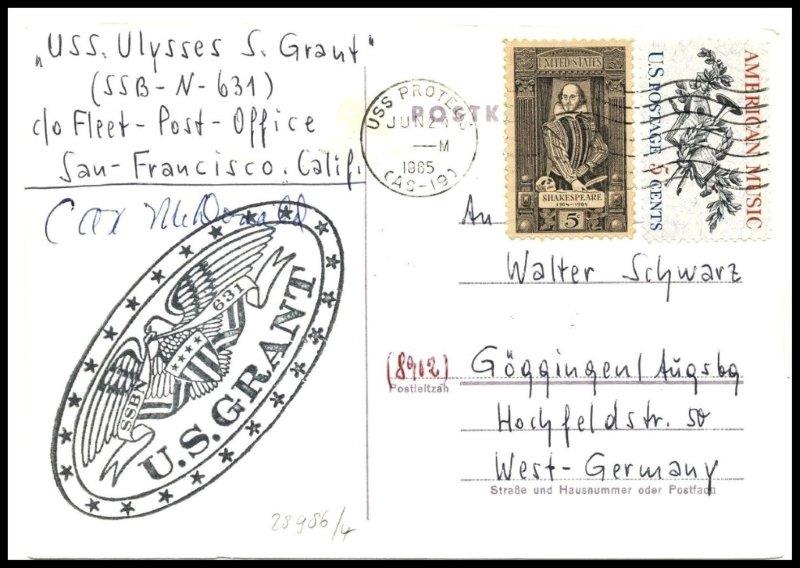 „USS. Ulysses S. Grant"
(SSB-N-631)
c/o Fleet-Post-Office
San-Francisco. Calif.
McDonald
SSBN 631
U.S. GRANT
28986/4
POSTK
USS PROTEU
JUN 24
—M
1965
(AS-19)
UNITED STATES
SHAKESPEARE
1564-1964
5¢
US POSTAGE 5 CENTS
AMERICAN MUSIC
An
Walter Schwarz
(8902)
Postleitzah
Göggingen/Augsbg
Hochfeldstr. 50
West-Germany
Straße und Hausnummer oder Postfach